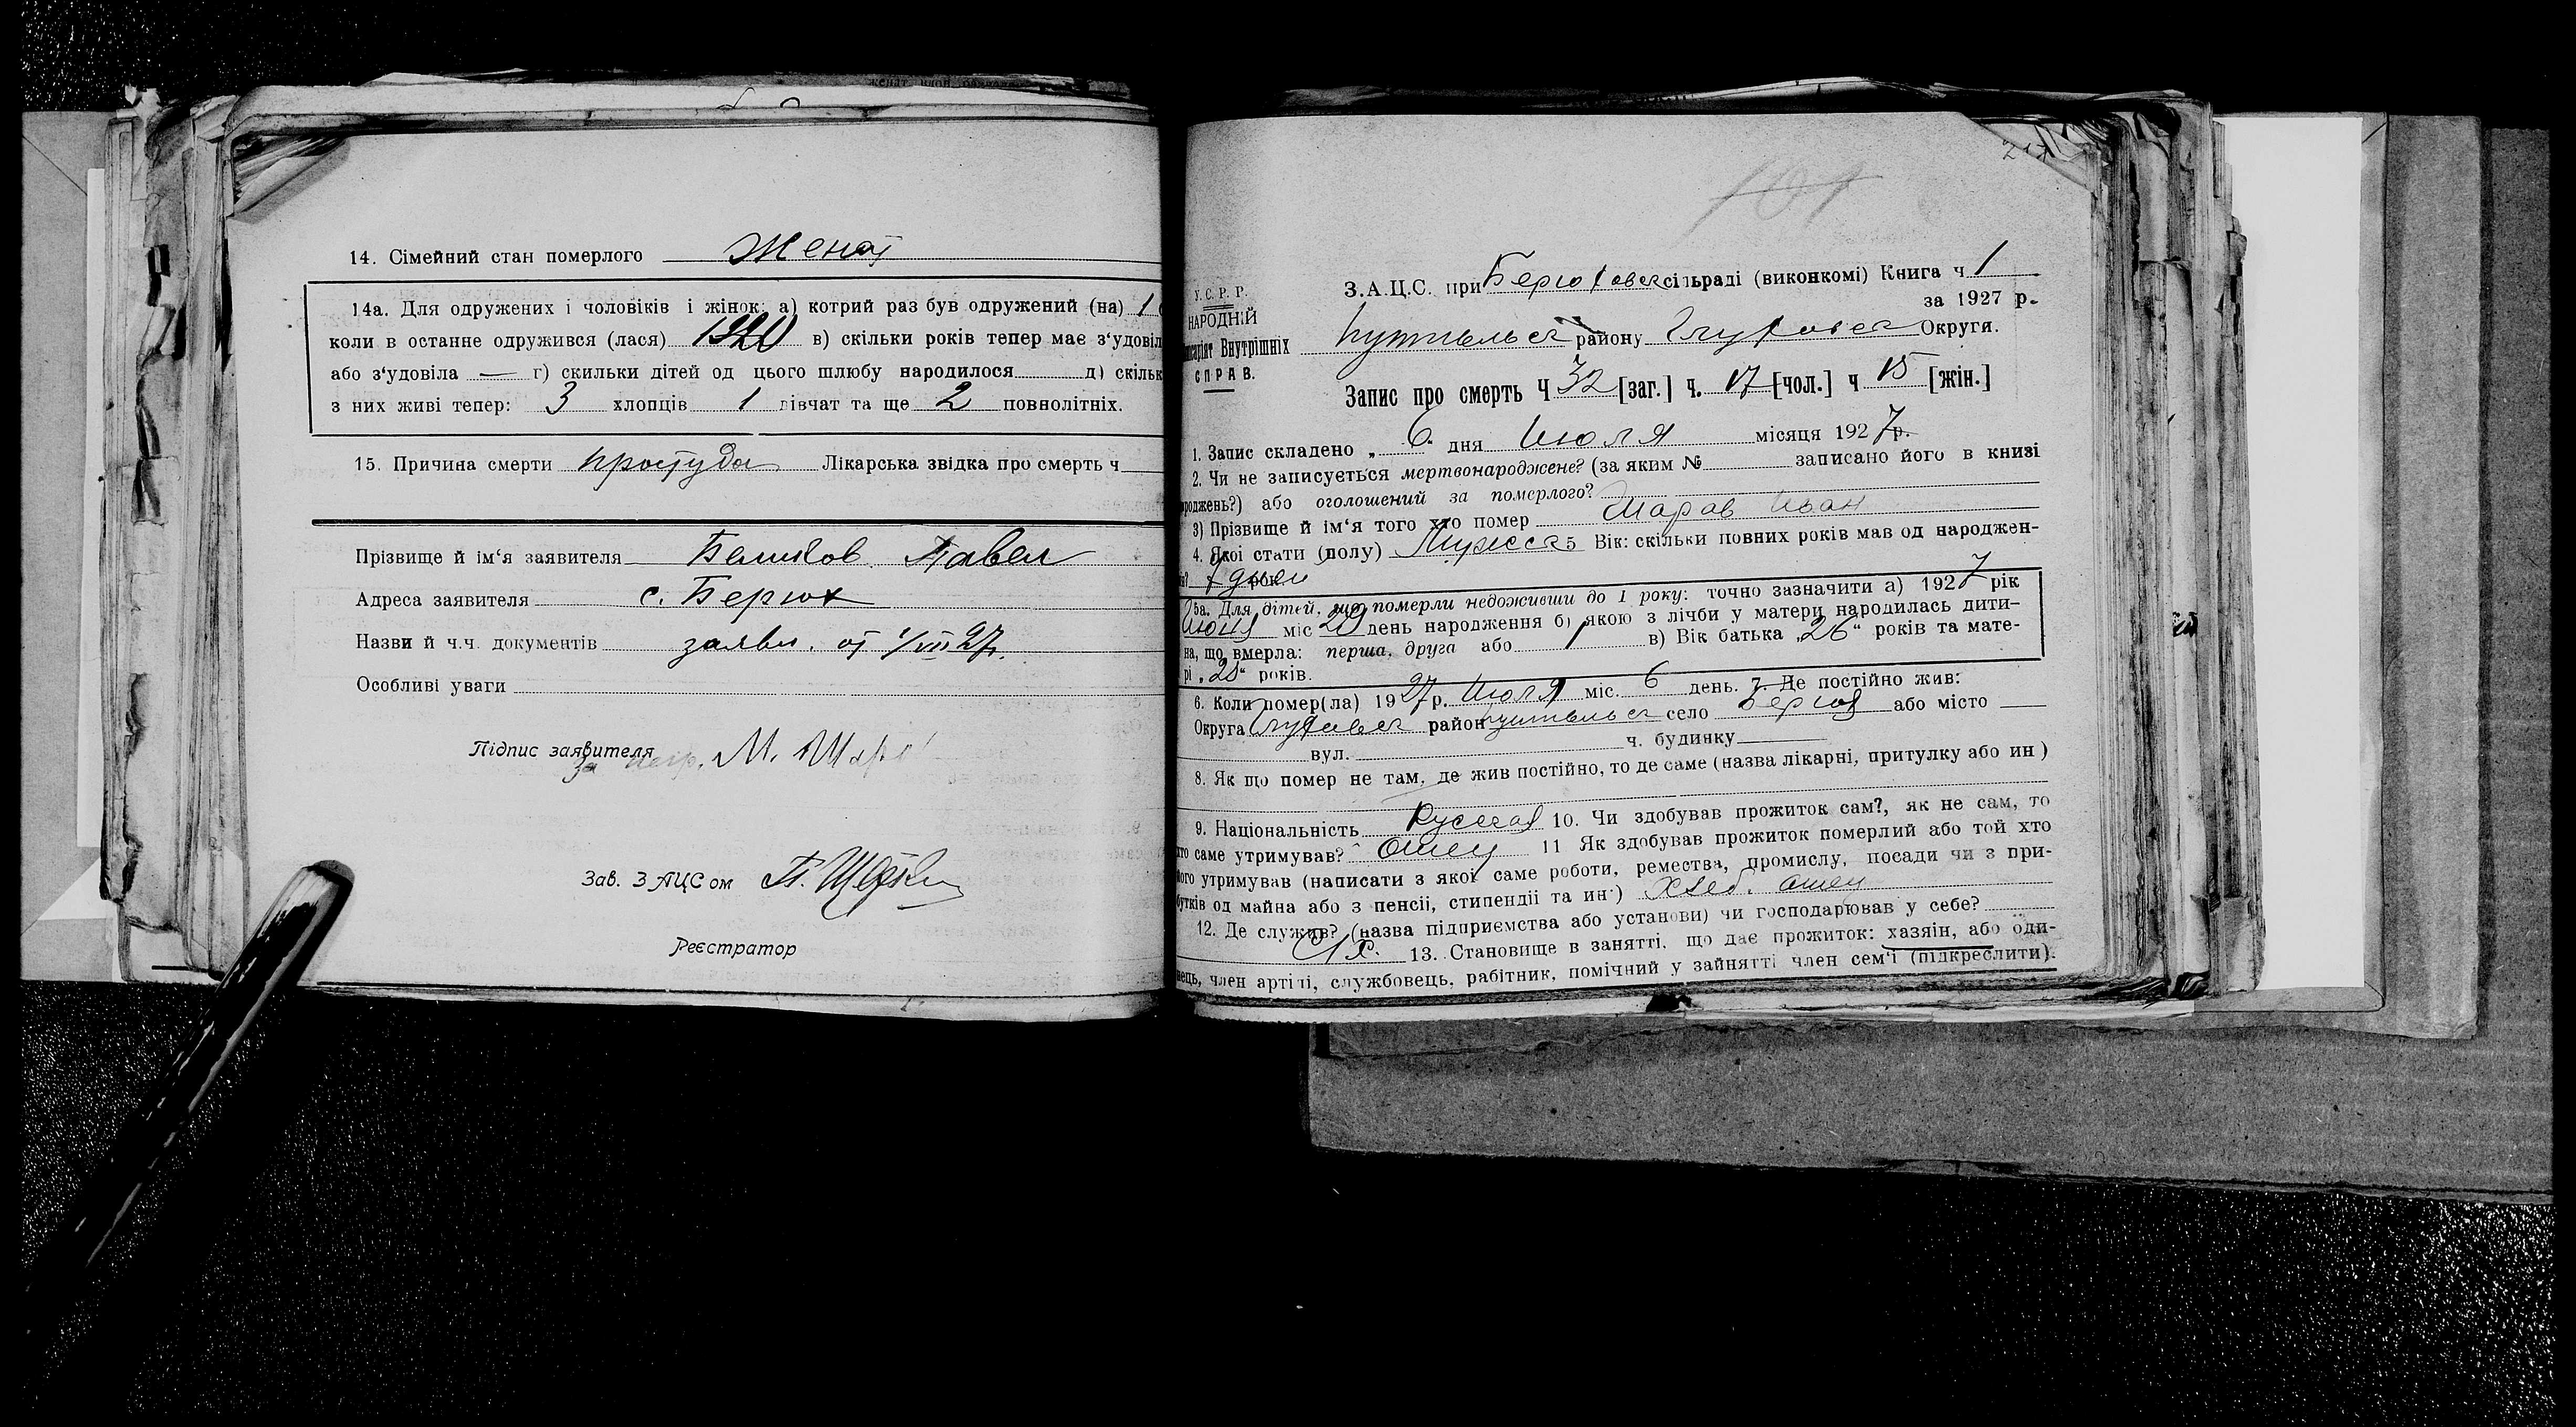 14. Сімейний стан померлого Женат
14а. Для одружених і чоловіків і жінок: а) котрий раз був одружений (на) 1
коли в останне одружився (лася) в) скільки років тепер має з‘удовіл
або з‘удовіла — г) скильки дітей од цього шлюбу народилося д) скільк
з них живі тепер: 3 хлопців 1 дівчат та ще 2 повнолітніх.
15. Причина смерти простуда Лікарська звідка про смерть ч
Прізвище й ім‘я заявителя Беликов Павел
Адреса заявителя с. Берюх
Назви й ч.ч. документів заявл. от 1/VII 27г.
Особливі уваги
Підпис заявителя
За негр. М. Шара
Зав. ЗАЦСом П.
Реєстратор
101
У.С.Р.Р.
НАРОДНІЙ
місаріят Внутрішніх
СПРАВ.
З.А.Ц.С. при Берюховск сільраді (виконкомі) Книга ч 1
за 1927 р.
Путивльск району Глуховск Округи.
Запис про смерть Ч 32 [заг.] ч. 17 [чол.] ч 15 [жін.]
1. Запис складено „ 6 “ дня Июля місяця 1927 р.
2. Чи не записується мертвонароджене? (за яким № записано його в книзі
роджень?) або оголошений за померлого?
3) Прізвище й ім‘я того хто помер Шаров Иван
4. Якої стати (полу) Мужеск 5 Вік: скільки повних років мав од народжен-
ня? 7 дней
5а. Для дітей, що померли недоживши до 1 року: точно зазначити а) 1927 рік
Июня міс 29 день народження б) якою з лічби у матери народилась дити-
на, що вмерла: перша, друга або 1 в) Вік батька „26“ років та мате-
рі „25“ років.
6. Коли помер(ла) 1927 р. Июля міс. 6 день. 7. Де постійно жив:
Округа Глуховск район Путивльск село Берюх або місто —
вул. ч. будинку
8. Як що помер не там, де жив постійно, то де саме (назва лікарні, притулку або ин)
9. Національність Русская 10. Чи здобував прожиток сам?, як не сам, то
хто саме утримував? Отец 11 Як здобував прожиток померлий або той хто
його утримував (написати з якої саме роботи, ремества, промислу, посади чи з при-
бутків од майна або з пенсії, стипендії та ин·) хлеб. отец
12. Де служив? (назва підприємства або установи) чи господарював у себе?
С/х. 13. Становище в занятті, що дає прожиток: хазяїн, або оди-
нець, член артілі, службовець, рабітник, помічний у зайнятті член сем‘ї (підкреслити).